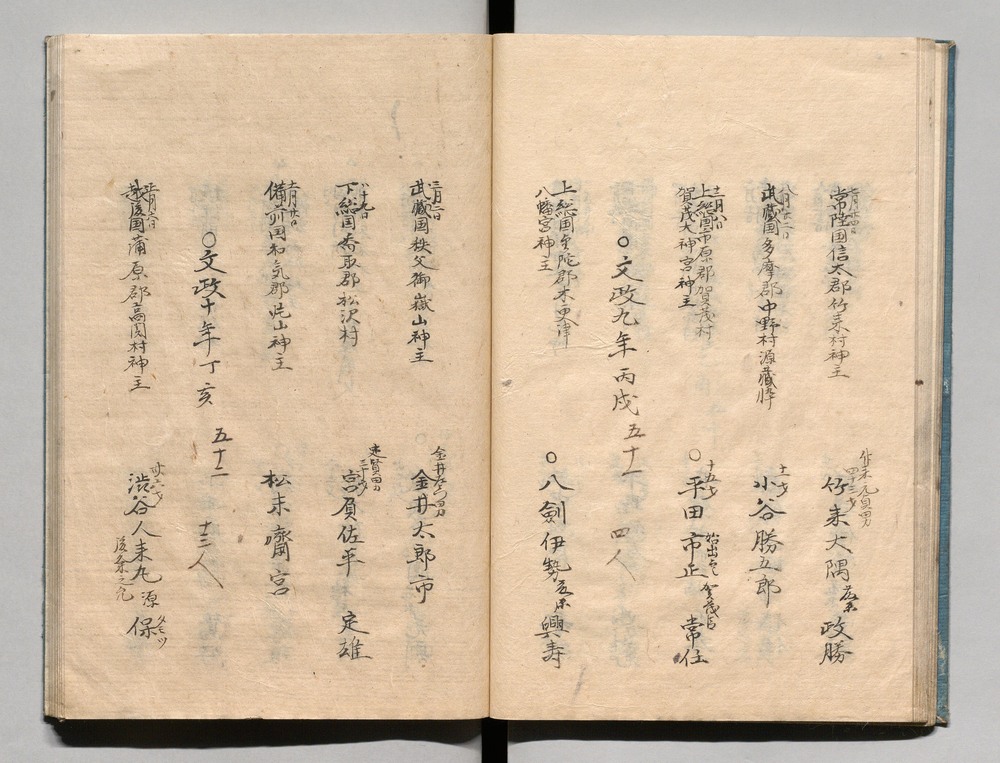 七月廿四日
常陸国信太郡竹来村神主
四十三才
竹来大隅 政勝
八月廿二日
武蔵国多摩郡中野村源蔵悴
十一才
小谷勝五郎
上総国市原郡賀茂村
賀茂大神宮神主
十五才
○平田市正 常任
○文政九年丙戌 五十一 四人
上総国望陀郡木更津
八幡宮神主
○八剱伊勢 興寿
三月二日
武蔵国秩父御嶽山神主
金井太郎市
八十九日
下総国香取郡松沢村
三十才
宮負佐平 定雄
備前国和気郡 山神主
松末齋宮
○文政十年丁亥 五十二 十三人
正月六日
越後国蒲原郡高関村神主
廿六才
渋谷人来丸 源 保